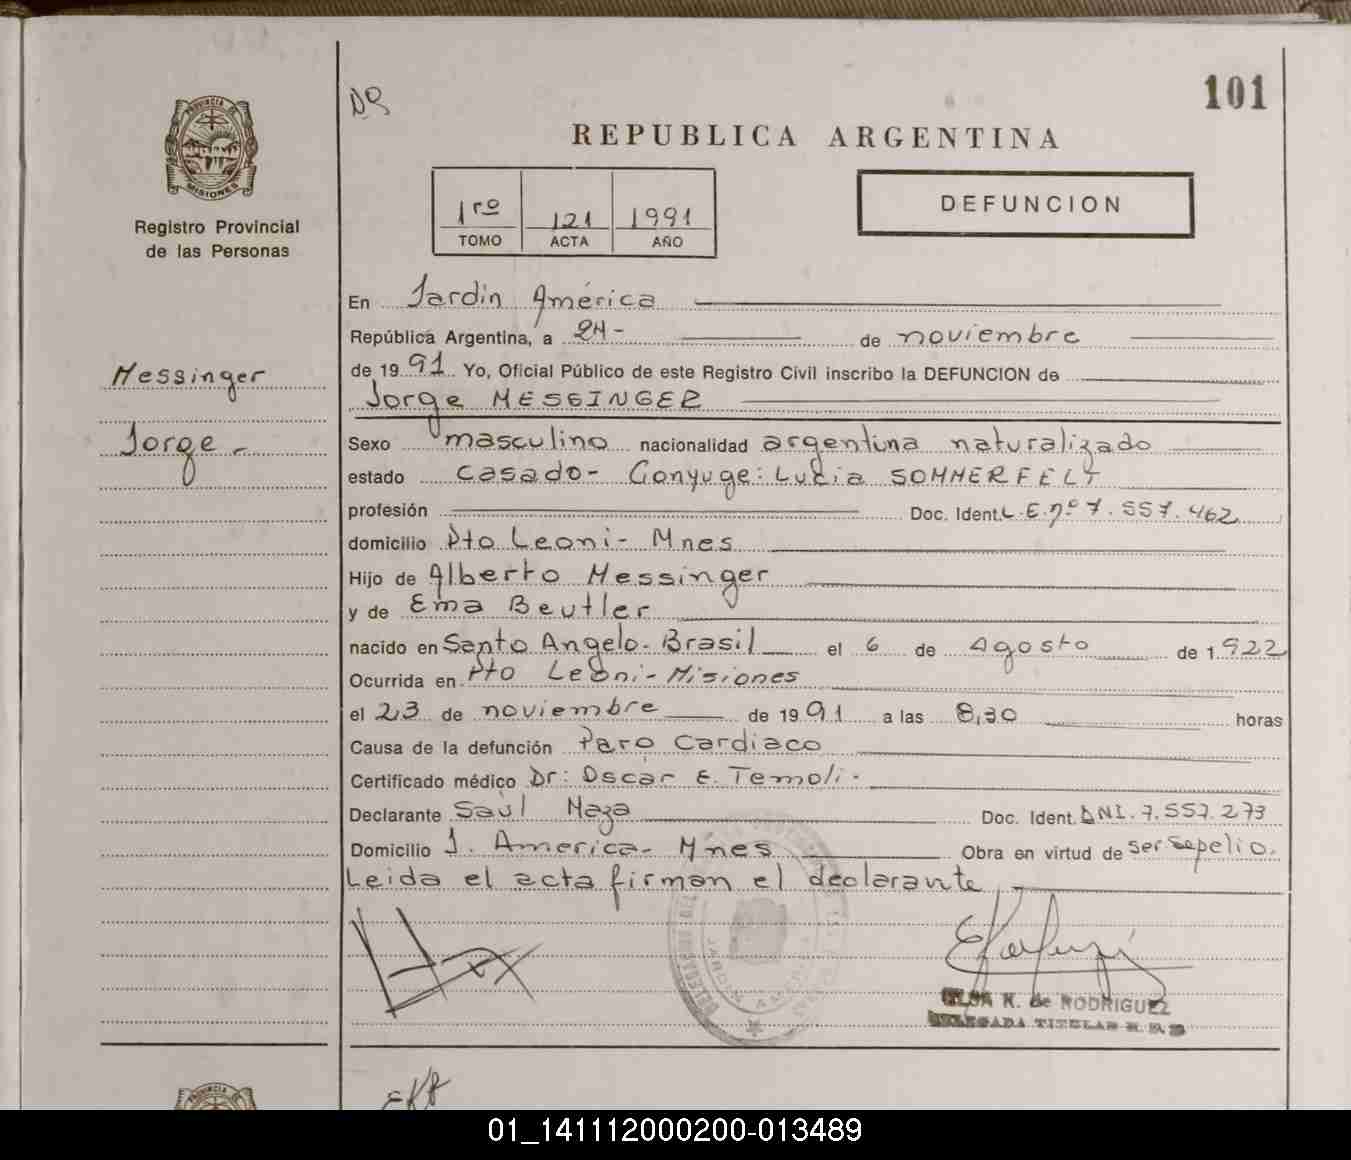 101
REPUBLICA ARGENTINA
PROVINCIA DE
MISIONES
Registro Provincial
de las Personas
1ro 121 1991
TOMO ACTA AÑO
DEFUNCION
En Jardin América
República Argentina, a 24- de noviembre
de 1991 Yo, Oficial Público de este Registro Civil inscribo la DEFUNCION de
Jorge MESSINGER
Messinger
Jorge -
Sexo masculino nacionalidad argentina naturalizado
estado casado- Conyuge: Lucia SOMMERFELT
profesión Doc. Ident. L.E.nº 7.557.462
domicilio Pto Leoni- Mnes
Hijo de Alberto Messinger
y de Ema Beutler
nacido en Santo Angelo-Brasil el 6 de Agosto de 1.922
Ocurrida en Pto Leoni-Misiones
el 23 de noviembre de 1991 a las 8,30 horas
Causa de la defunción Paro Cardiaco
Certificado médico Dr: Oscar E. Temoli.
Declarante Saúl Maza Doc. Ident. DNI.7.557.273
Domicilio J. America- Mnes Obra en virtud de ser sepelio.
Leida el acta firman el declarante,
JARDIN AMERICA
ELSA K. de RODRIGUEZ
DELEGADA TITULAR R. P. P
01_141112000200-013489